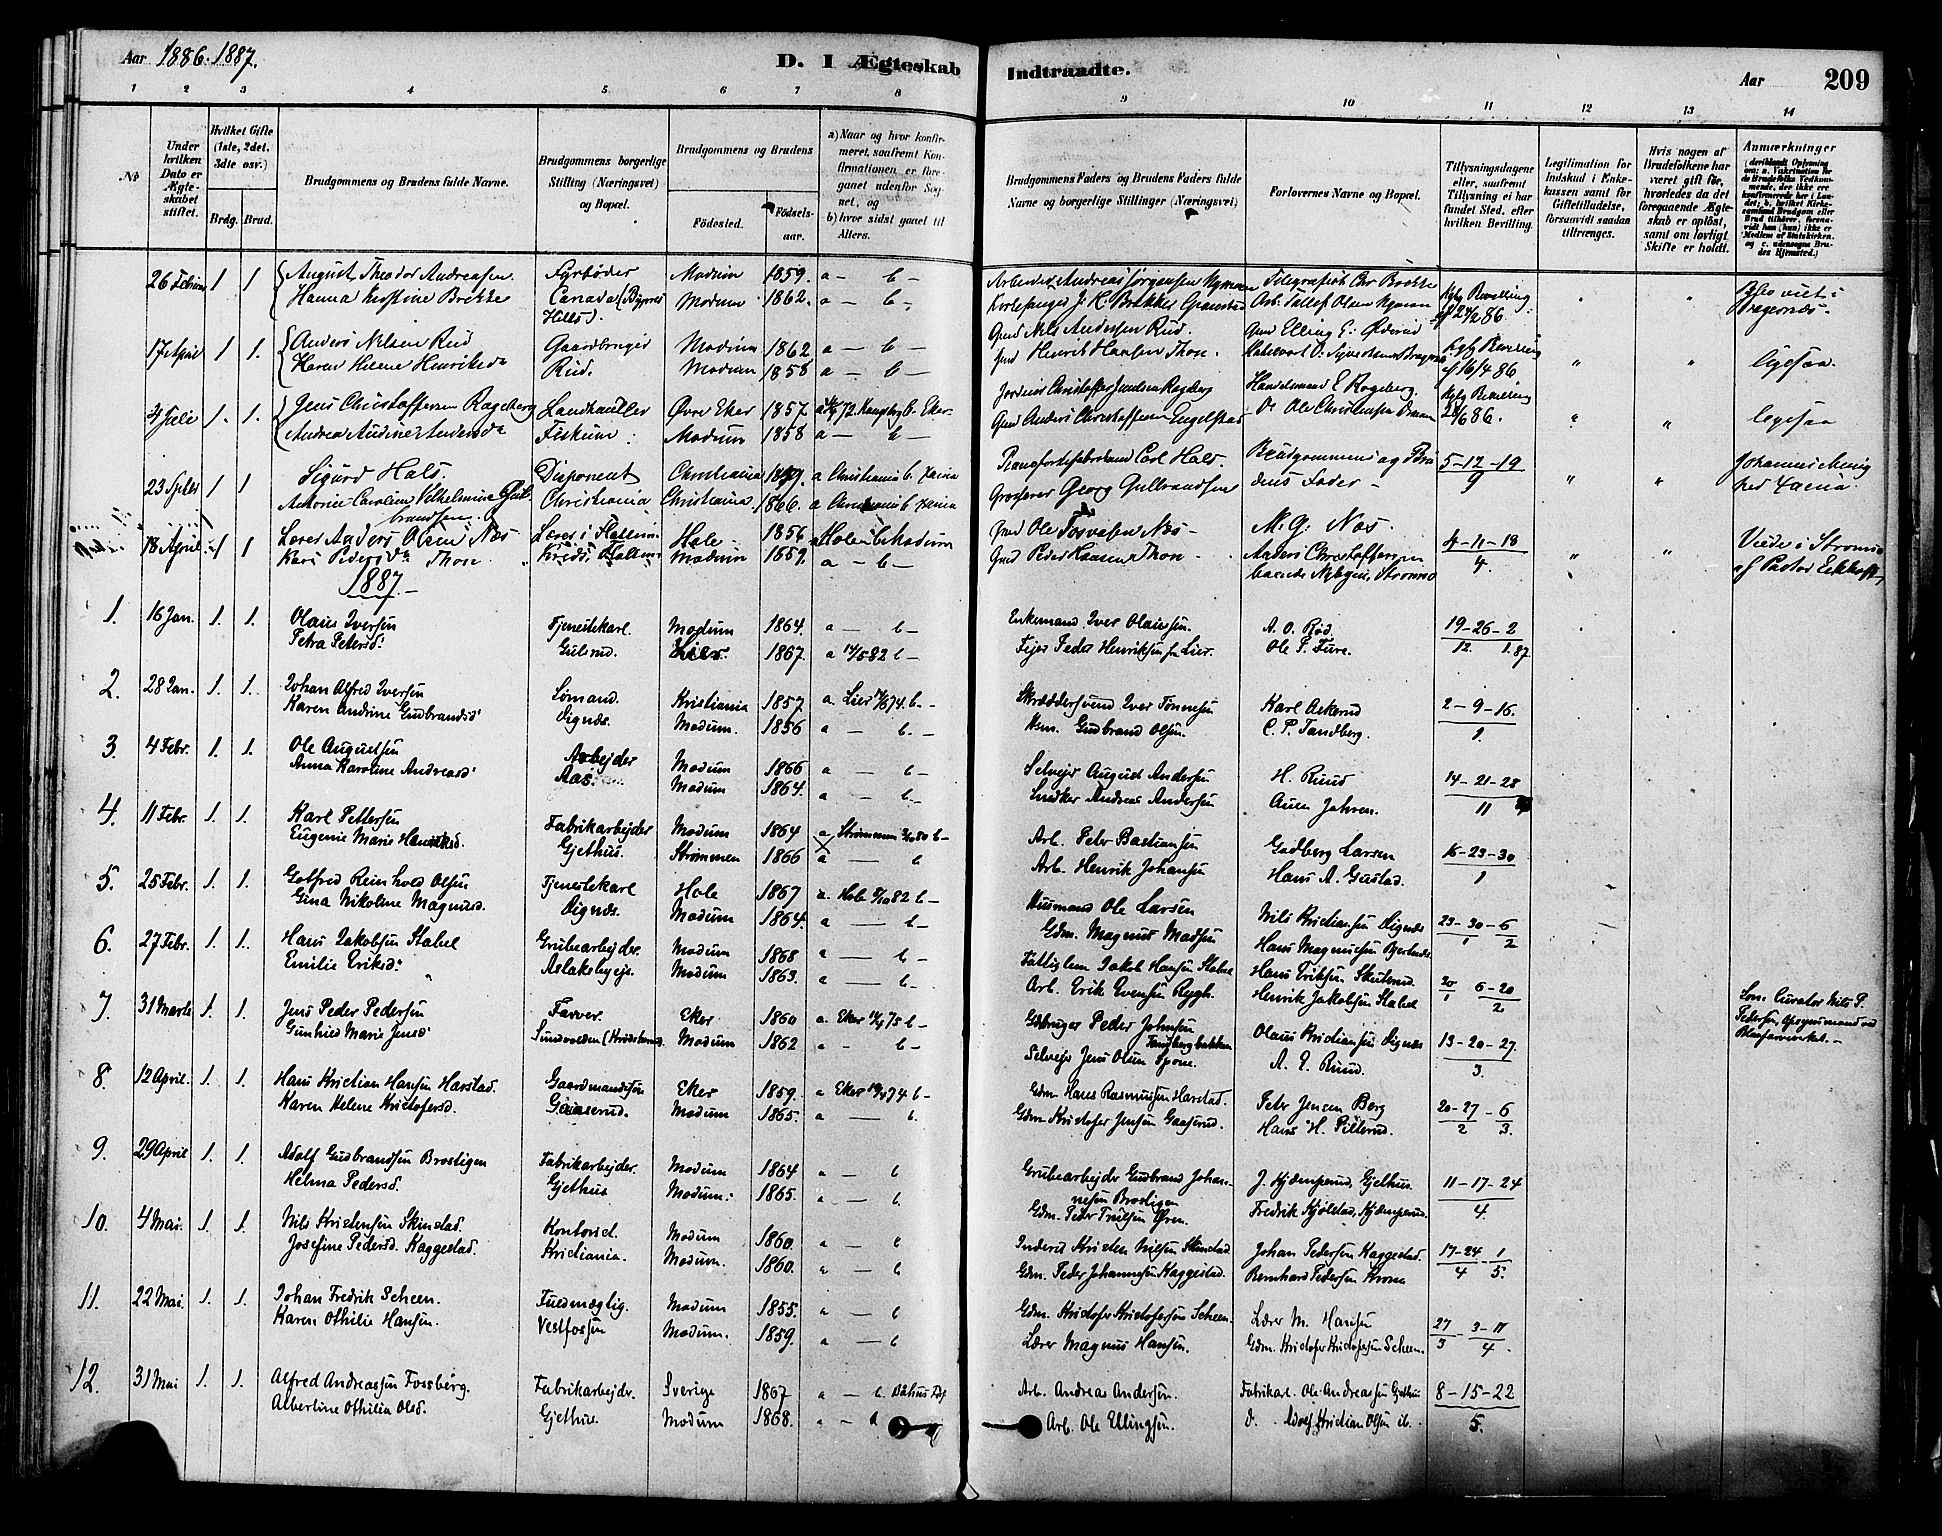 Aar 1886. 1887.
D. I Ægteskab Indtraadte.
Aar 209
1 2 3 4 5 6 7 8 9 10 11 12 13 14
No.
Under hvilken Dato er Ægteskabet stiftet.
Hvilket Gifte (1ste, 2det, 3die osv.)
Brdg. Brud.
Brudgommens og Brudens fulde Navne.
Brudgommens borgerlige Stilling (Næringsvei) og Bopæl.
Brudgommens og Brudens
Födested. Födselsaar.
a) Naar og hvor konfirmeret, saafremt Konfirmationen er foregaaet udenfor Sognet, og b) hvor sidst gaaet til Alters.
Brudgommens Faders og Brudens Faders fulde Navne og borgerlige Stillinger (Næringsvei)
Forlovernes Navne og Bopæl.
Tillysningsdagene eller, saafremt Tillysning ei har fundet Sted, efter hvilken Bevilling.
Legitimation for Indskud i Enkekassen samt for Giftetilladelse, forsaavidt saadan tiltrænges.
Hvis nogen af Brudefolkene har været gift för, hvorledes da det foregaaende Ægteskab er oplöst, samt om lovligt Skifte er holdt.
Anmærkninger
26 Febru 1 1 August Theodor Andreasen Fyrbøder Modum 1859. a – b – Arbeider Andreas Jørgensen Nymoen Telegrafist Chr Brekke Kgl Bevilling
Hanna Kristine Brekke Canada (Byrnes Hills). Modum 1862. a – b – Kirkesanger J. K. Brekke Arb. Tellef Olsen Nymoen af 24/2 86. Bragernæs
17 April 1 1. Anders Nilsen Rud Gaardbruger Modum 1862 a – b – Gmd Nils Andersen Rud. Gmd Elling E. Øderud Kgl Bevilling
Karen Helene Henriksdr Rud. Modum 1858 a – b – Gmd Henrik Hansen Thon. af 16/4 86 ligesaa.
4 Juli 1. 1 Jens Christoffersen Rogeberg Landhandler Øvre Eker 1857. a 72. Kongsberg b. Eker. Handelsmand E Rogeberg. Kgl Bevilling
Andrea Andersdr Fiskum. Modum 1858 a – b – Gmd Anders Christoffersen Engelstad Do Ole Christensen 86. ligesaa
23 Septbr 1 1 Sigurd Hals. Disponent Christiania a Christiania b. Xania Pianofortefabrikant Carl Hals. Brudgommens og Brudens Fader – 5-12-19/9 Johannes Menig
Antonie Caroline Vilhelmine Gulbrandsen Christiania Christiania. 1866. a Christiania b Xania Grosserer Georg Gulbrandsen hed Xania.
18 April 1 1 Lærer Anders Olsen Næs Lærer i Hole 1856 a Hole b Modum Gmd Ole Torvalsen Næs – M. G. Næs. 4-11-18/4. Viede i Strømsø
Kari Pedersdr Thon Modum 1859. a – b – Gmd Peder Hansen Thon. Anders Christoffersen boende Nybyen, Strømsø af Pastor Eckhoff
1887.
1. 16 Jan. 1. 1. Olaus Iversen Tjenestekarl. Modum 1864. a – b – Enkemand Iver Olausen. A. O. Rød 19-26-2
Petra Petersd: Gulsrud. Lier. 1867. a 14/5 82 b – Fejer Peder Henriksen fra Lier. Ole P. Fure. 12 1.87
2. 28 Jan. 1. 1. Johan Alfred Iversen Sømand. Kristiania 1857. a. Lier 74. b. – Skræddersvend Iver Tønnesen Karl Askerud 2-9-16.
Karen Andrine Gudbrandsd: Vignæs. Modum. 1856 a – b. – Hsm. Gudbrand Olsen. C. P. Tandberg. 1.
3. 4 Febr. 1. 1. Ole Augustsen Arbejder Modum 1866 a – b – Selvejer August Andersen H. Ruud 14-21-28
Anna Karoline Andreasd: Aas. Modum 1864. a – b – Snedker Andreas Andersen Auen Jahren. 11
4. 11 Febr. 1. 1. Karl Pettersen Fabrikarbejder Modum 1864 a Strømmen 80 b – Arb. Peter Bastiansen Gudberg Larsen 16-23-30
Eugenie Marie Henriksd. Gjethus. Strømmen 1866 a – b Arb. Henrik Johansen Hans A. Gustad. 1
5. 25 Febr. 1. 1. Gotfred Reinhold Olsen Tjenestekarl Hole 1867 a. Hole 82 b – Husmand Ole Larsen Nils Kristiansen Vignæs 23-30-6
Gina Nikoline Magnusd. Vignæs. Modum 1864. a – b – Gdm. Magnus Madsen Hans Magnussen Bjertnæs 1 2
6. 27 Febr. 1. 1. Hans Jakobsen Stabel Grubearbejder. Modum 1868 a – b – Fattiglem Jakob Hansen Stabel Hans Eriksen Skuterud. 30/1 6-20/2
Emilie Eriksd: Aslaksbyeje. Modum 1863. a – b – Arb. Erik Evensen Rygh. Henrik Jakobsen Stabel
7. 31 Marts 1. 1. Jens Peder Pedersen Farver. Eker 1860 a. Eker 75 b – Gdbruger Peder Johnsen Olaus Kristiansen Vignæs 13-20-27. Som Curator Nils P. Pedersen, Opsynsmand ved Blaafarveverket. –
Gunhild Marie Jensd: Sundvolden (Krødsherred). Modum 1862 a – b – Selvejer Jens Olsen Spone Tandbergbakken A. E. Ruud. 3.
8. 12 April. 1. 1. Hans Kristian Hansen Harstad. Gaardmandssøn Eker 1859. a Eker 74 b – Gdm. Hans Rasmussen Harstad. Peter Jensen Berg 20-27-6
Karen Helene Kristofersd. Gaaserud. Modum 1865. a – b. Gdm. Kristofer Jensen Gaaserud. Hans H. Pillerud. 2 3.
9. 29 April 1. 1. Adolf Gudbrandsen Brostigen Fabrikarbejder. Modum 1864 a – b Grubearbejder Gudbrand Johannesen Brostigen J. Kjæmperud, Gjethus. 11-17-24
Helma Pedersd. Gjethus Modum. 1865. a – b. Gdm. Peder Truelsen Øren. Fredrik Kjølstad, Kjæmperud. 4.
10. 4 Mai. 1. 1. Nils Kristensen Skinstad. Kontorist. Modum 1860. a – b Inderst Kristen Nilsen Skinstad. Johan Pedersen Kaggestad. 17-24-1
Josefine Pedersd. Kaggestad. Kristiania. Modum. 1860. a – b Gdm. Peder Johannesen Kaggestad. Bernhard Pedersen Krona 4 5.
11. 22 Mai. 1. 1. Johan Fredrik Scheen. Fuldmægtig. Modum 1855. a – b Gdm. Kristofer Kristofersen Scheen. Lærer M. Hansen 27/3-3-11/4
Karen Othilie Hansen. Vestfossen Modum. 1859. a – b Lærer Magnus Hansen. Gdm. Kristofer Kristofersen Scheen.
12. 31 Mai 1. 1. Alfred Andreassen Fossberg. Fabrikarbejder. Sverige 1867 a – b. Arb. Andreas Andersen. Fabrikarb. Ole Andreassen Gjethus 8-15-22
Albertine Othilia Olsd. Gjethus. Modum 1868. a – Arb. Ole Ellingsen. d. Adolf Kristian Olsen ib. 5.